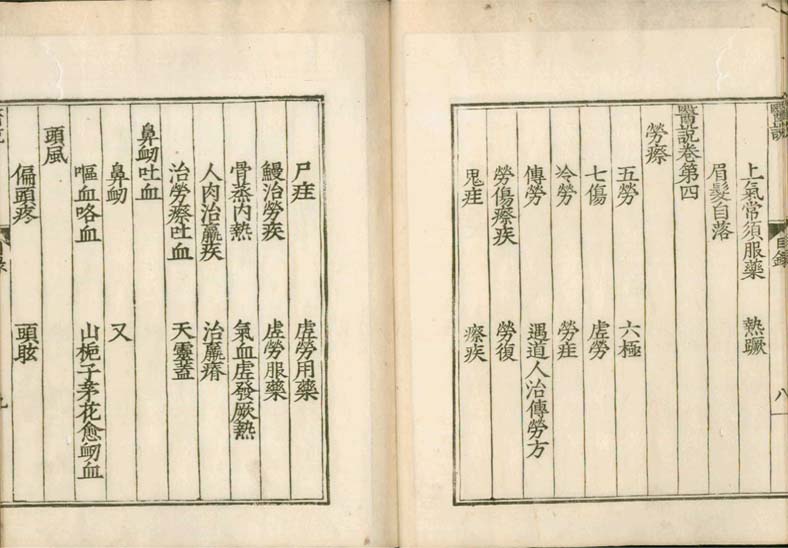 醫說
目錄
八
上氣常須服藥 熱驅
眉髮自落
醫說卷第四
勞瘵
五勞 六極
七傷 虛勞
冷勞 勞疰
傳勞 遇道人治傳勞方
勞傷瘵疾 勞復
鬼疰 瘵疾
尸疰 虛勞用藥
鰻治勞疾 虛勞服藥
骨蒸內熱 氣血虛發厥熱
人肉治羸疾 治羸瘠
治勞瘵吐血 天靈蓋
鼻衂吐血
鼻衂 又
嘔血咯血 山梔子茅花愈衂血
頭風
偏頭疼 頭眩
目錄
九